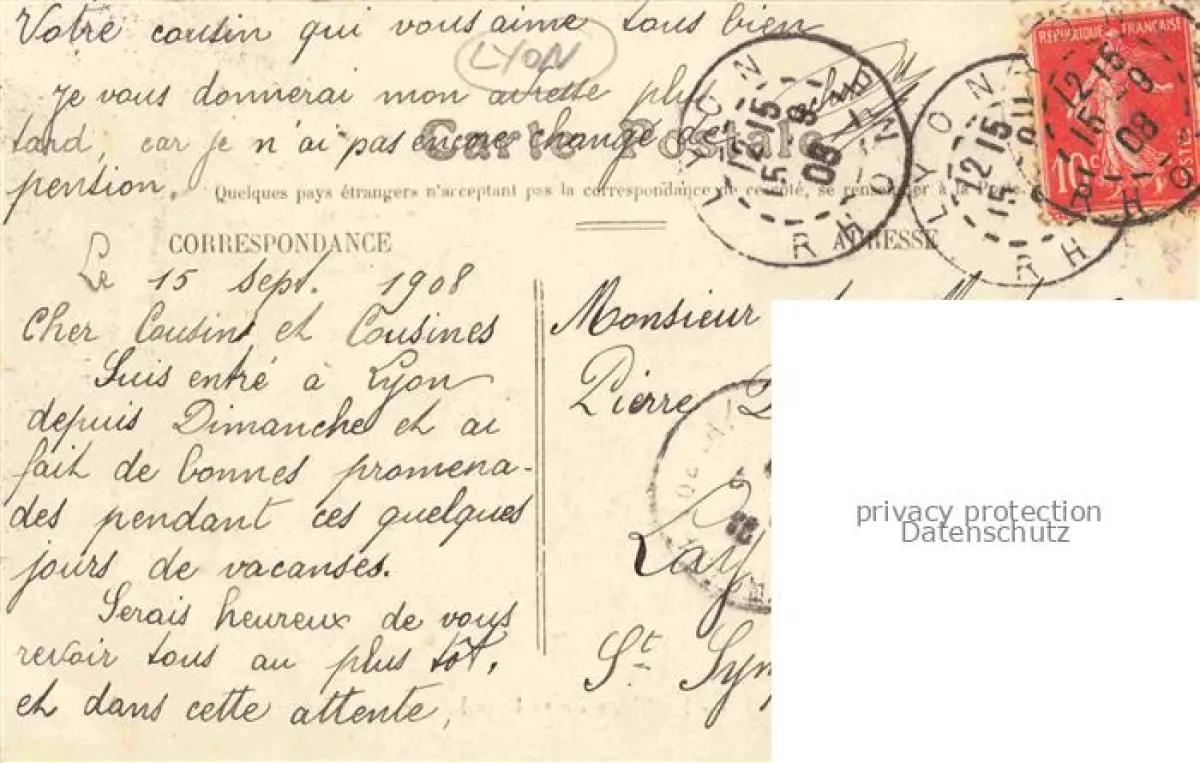 Votre cousin qui vous aime tous bien
LYON
Je vous donnerai mon adresse plus
tard, car je n'ai pas encore changé de
pension.
Carte Postale
Quelques pays étrangers n'acceptent pas la correspondance de ce côté, se renseigner à la Poste.
CORRESPONDANCE
Le 15 Sept. 1908
Cher Cousin et Cousines
Suis entré à Lyon
depuis Dimanche et ai
fait de bonnes promena-
des pendant ces quelques
jours de vacanses.
Serais heureux de vous
revoir tous au plus tôt,
et dans cette attente,
ADRESSE
Monsieur
Pierre
Lay
St Sym
LYON RHONE
12 15
15 9
08
LYON RH
12 15
15
12 15
15 9
08
RHO
REPUBLIQUE FRANÇAISE
10c
POSTES
privacy protection
Datenschutz